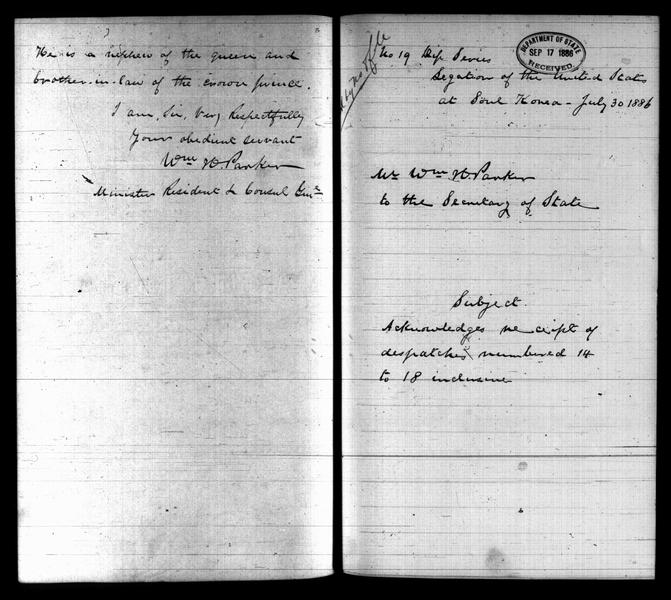 He is a nephew of the queen and
brother-in-law of the crown prince.
I am, Sir, Very Respectfully
Your obedient servant
Wm H. Parker
Minister Resident & Consul Genl
No 19 Dip Series
DEPARTMENT OF STATE
SEP 17 1886
RECEIVED
Legation of the United States
at Soul Korea - July 30 1886
Mr Wm H. Parker
to the Secretary of State
Subject.
Acknowledges receipt of
despatches numbered 14
to 18 inclusive